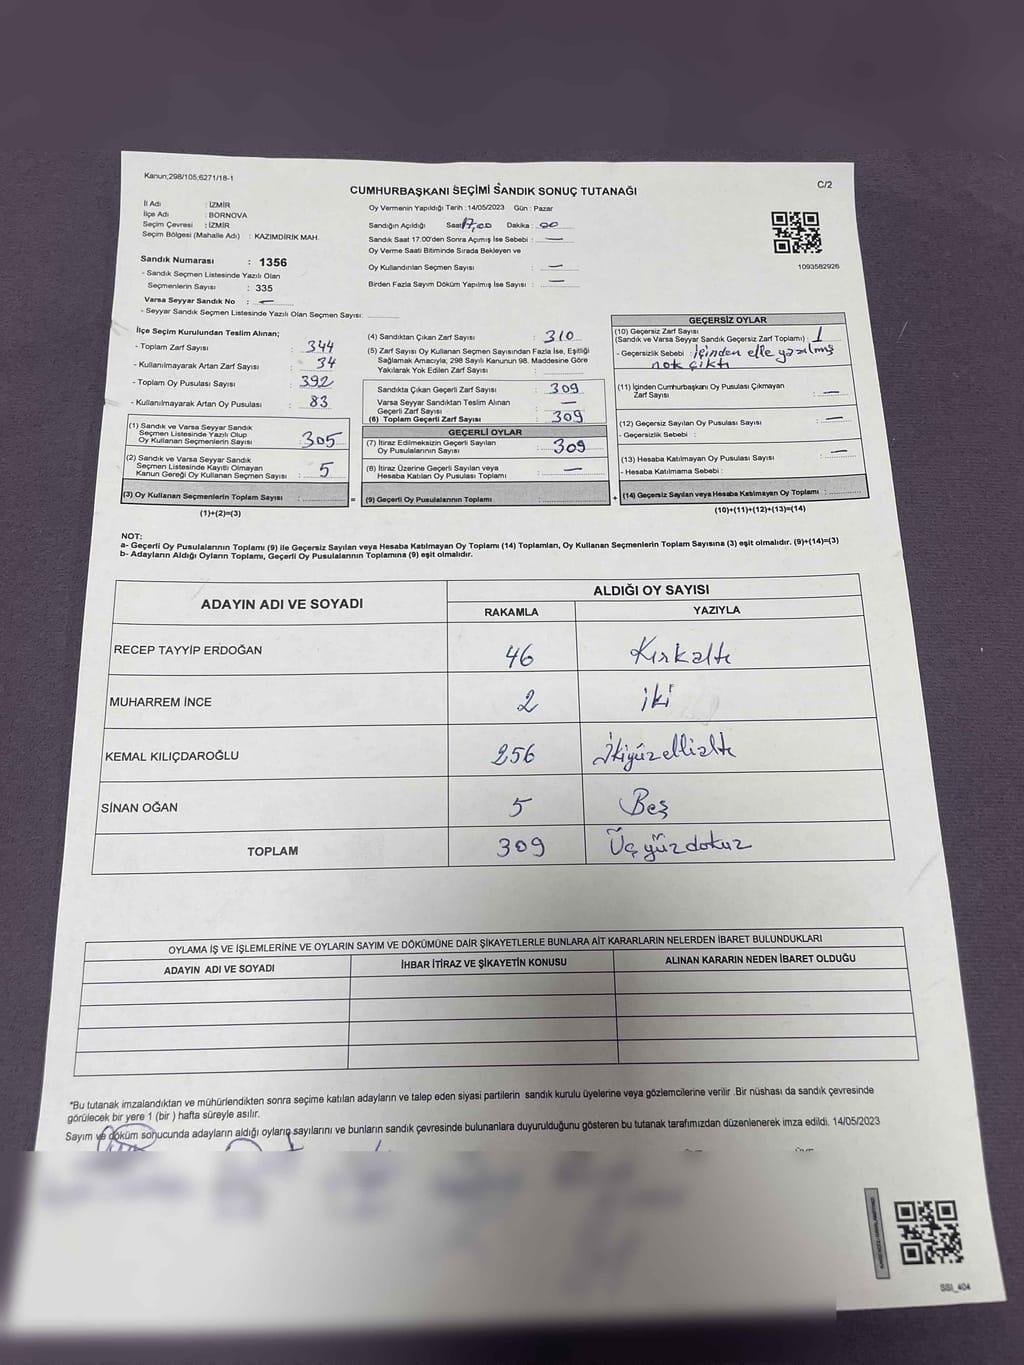 Kanun;298/105;6271/18-1
C/2
CUMHURBAŞKANI SEÇİMİ SANDIK SONUÇ TUTANAĞI
İl Adı : İZMİR
İlçe Adı : BORNOVA
Seçim Çevresi : İZMİR
Seçim Bölgesi (Mahalle Adı) : KAZIMDİRİK MAH.
Oy Vermenin Yapıldığı Tarih : 14/05/2023 Gün : Pazar
Sandığın Açıldığı Saat 17,00 Dakika : 00
Sandık Saat 17:00'den Sonra Açımış İse Sebebi : —
Oy Verme Saati Bitiminde Sırada Bekleyen ve
Oy Kullandırılan Seçmen Sayısı : —
Birden Fazla Sayım Döküm Yapılmış İse Sayısı : —
1093582926
Sandık Numarası : 1356
- Sandık Seçmen Listesinde Yazılı Olan
Seçmenlerin Sayısı : 335
Varsa Seyyar Sandık No : —
- Seyyar Sandık Seçmen Listesinde Yazılı Olan Seçmen Sayısı:
İlçe Seçim Kurulundan Teslim Alınan;
- Toplam Zarf Sayısı : 344
- Kullanılmayarak Artan Zarf Sayısı : 34
- Toplam Oy Pusulası Sayısı : 392
- Kullanılmayarak Artan Oy Pusulası : 83
(1) Sandık ve Varsa Seyyar Sandık
Seçmen Listesinde Yazılı Olup
Oy Kullanan Seçmenlerin Sayısı : 305
(2) Sandık ve Varsa Seyyar Sandık
Seçmen Listesinde Kayıtlı Olmayan
Kanun Gereği Oy Kullanan Seçmen Sayısı : 5
(3) Oy Kullanan Seçmenlerin Toplam Sayısı :
(1)+(2)=(3)
(4) Sandıktan Çıkan Zarf Sayısı : 310
(5) Zarf Sayısı Oy Kullanan Seçmen Sayısından Fazla İse, Eşitliği
Sağlamak Amacıyla; 298 Sayılı Kanunun 98. Maddesine Göre
Yakılarak Yok Edilen Zarf Sayısı :
Sandıkta Çıkan Geçerli Zarf Sayısı : 309
Varsa Seyyar Sandıktan Teslim Alınan
Geçerli Zarf Sayısı : —
(6) Toplam Geçerli Zarf Sayısı : 309
GEÇERLİ OYLAR
(7) İtiraz Edilmeksizin Geçerli Sayılan
Oy Pusulalarının Sayısı : 309
(8) İtiraz Üzerine Geçerli Sayılan veya
Hesaba Katılan Oy Pusulası Sayısı : —
= (9) Geçerli Oy Pusulalarının Toplamı :
GEÇERSİZ OYLAR
(10) Geçersiz Zarf Sayısı
(Sandık ve Varsa Seyyar Sandık Geçersiz Zarf Toplamı) : 1
- Geçersizlik Sebebi : İçinden elle yazılmış
not çıktı
(11) İçinden Cumhurbaşkanı Oy Pusulası Çıkmayan
Zarf Sayısı : —
(12) Geçersiz Sayılan Oy Pusulası Sayısı : —
- Geçersizlik Sebebi :
(13) Hesaba Katılmayan Oy Pusulası Sayısı : —
- Hesaba Katılmama Sebebi :
+ (14) Geçersiz Sayılan veya Hesaba Katılmayan Oy Toplamı :
(10)+(11)+(12)+(13)=(14)
NOT:
a- Geçerli Oy Pusulalarının Toplamı (9) ile Geçersiz Sayılan veya Hesaba Katılmayan Oy Toplamı (14) Toplamları, Oy Kullanan Seçmenlerin Toplam Sayısına (3) eşit olmalıdır. (9)+(14)=(3)
b- Adayların Aldığı Oyların Toplamı, Geçerli Oy Pusulalarının Toplamına (9) eşit olmalıdır.
ADAYIN ADI VE SOYADI
ALDIĞI OY SAYISI
RAKAMLA YAZIYLA
RECEP TAYYİP ERDOĞAN 46 Kırkaltı
MUHARREM İNCE 2 iki
KEMAL KILIÇDAROĞLU 256 İkiyüzellialtı
SİNAN OĞAN 5 Beş
TOPLAM 309 Üçyüzdokuz
OYLAMA İŞ VE İŞLEMLERİNE VE OYLARIN SAYIM VE DÖKÜMÜNE DAİR ŞİKAYETLERLE BUNLARA AİT KARARLARIN NELERDEN İBARET BULUNDUKLARI
ADAYIN ADI VE SOYADI İHBAR İTİRAZ VE ŞİKAYETİN KONUSU ALINAN KARARIN NEDEN İBARET OLDUĞU
*Bu tutanak imzalandıktan ve mühürlendikten sonra seçime katılan adayların ve talep eden siyasi partilerin sandık kurulu üyelerine veya gözlemcilerine verilir .Bir nüshası da sandık çevresinde
görülecek bir yere 1 (bir ) hafta süreyle asılır.
Sayım ve döküm sonucunda adayların aldığı oyların sayılarını ve bunların sandık çevresinde bulunanlara duyurulduğunu gösteren bu tutanak tarafımızdan düzenlenerek imza edildi. 14/05/2023
SSI_404